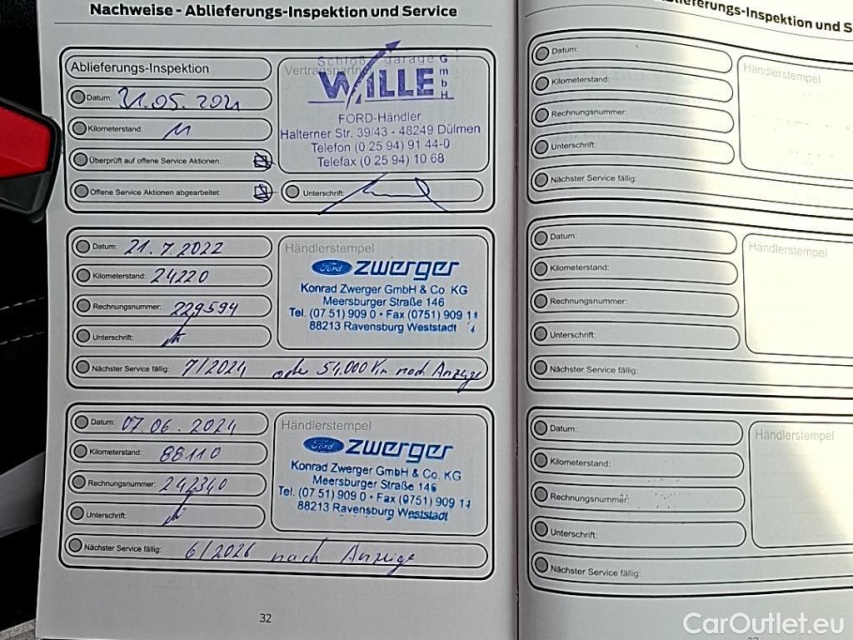 Nachweise - Ablieferungs-Inspektion und Service
Ablieferungs-Inspektion
Datum: 31.05.2021
Kilometerstand: 11
Überprüft auf offene Service Aktionen:
Offene Service Aktionen abgearbeitet:
Vertragspartner
Schloß garage GmbH
WILLE
FORD-Händler
Halterner Str. 39/43 - 48249 Dülmen
Telefon (0 25 94) 91 44-0
Telefax (0 25 94) 10 68
Unterschrift:
Datum: 21.7.2022
Kilometerstand: 24220
Rechnungsnummer: 229594
Unterschrift:
Nächster Service fällig: 7/2024 oder 54,000 Km nach Anzeige
Händlerstempel
Ford zwerger
Konrad Zwerger GmbH & Co. KG
Meersburger Straße 146
Tel. (07 51) 909 0 • Fax (0751) 909 11
88213 Ravensburg Weststadt
Datum: 07.06.2024
Kilometerstand: 88110
Rechnungsnummer: 242340
Unterschrift:
Nächster Service fällig: 6/2026 nach Anzeige
Händlerstempel
Ford zwerger
Konrad Zwerger GmbH & Co. KG
Meersburger Straße 146
Tel. (07 51) 909 0 • Fax (0751) 909 11
88213 Ravensburg Weststadt
32
Datum:
Kilometerstand:
Rechnungsnummer:
Unterschrift:
Nächster Service fällig:
Händlerstempel
Datum:
Kilometerstand:
Rechnungsnummer:
Unterschrift:
Nächster Service fällig:
Händlerstempel
Datum:
Kilometerstand:
Rechnungsnummer:
Unterschrift:
Nächster Service fällig:
Händlerstempel
CarOutlet.eu